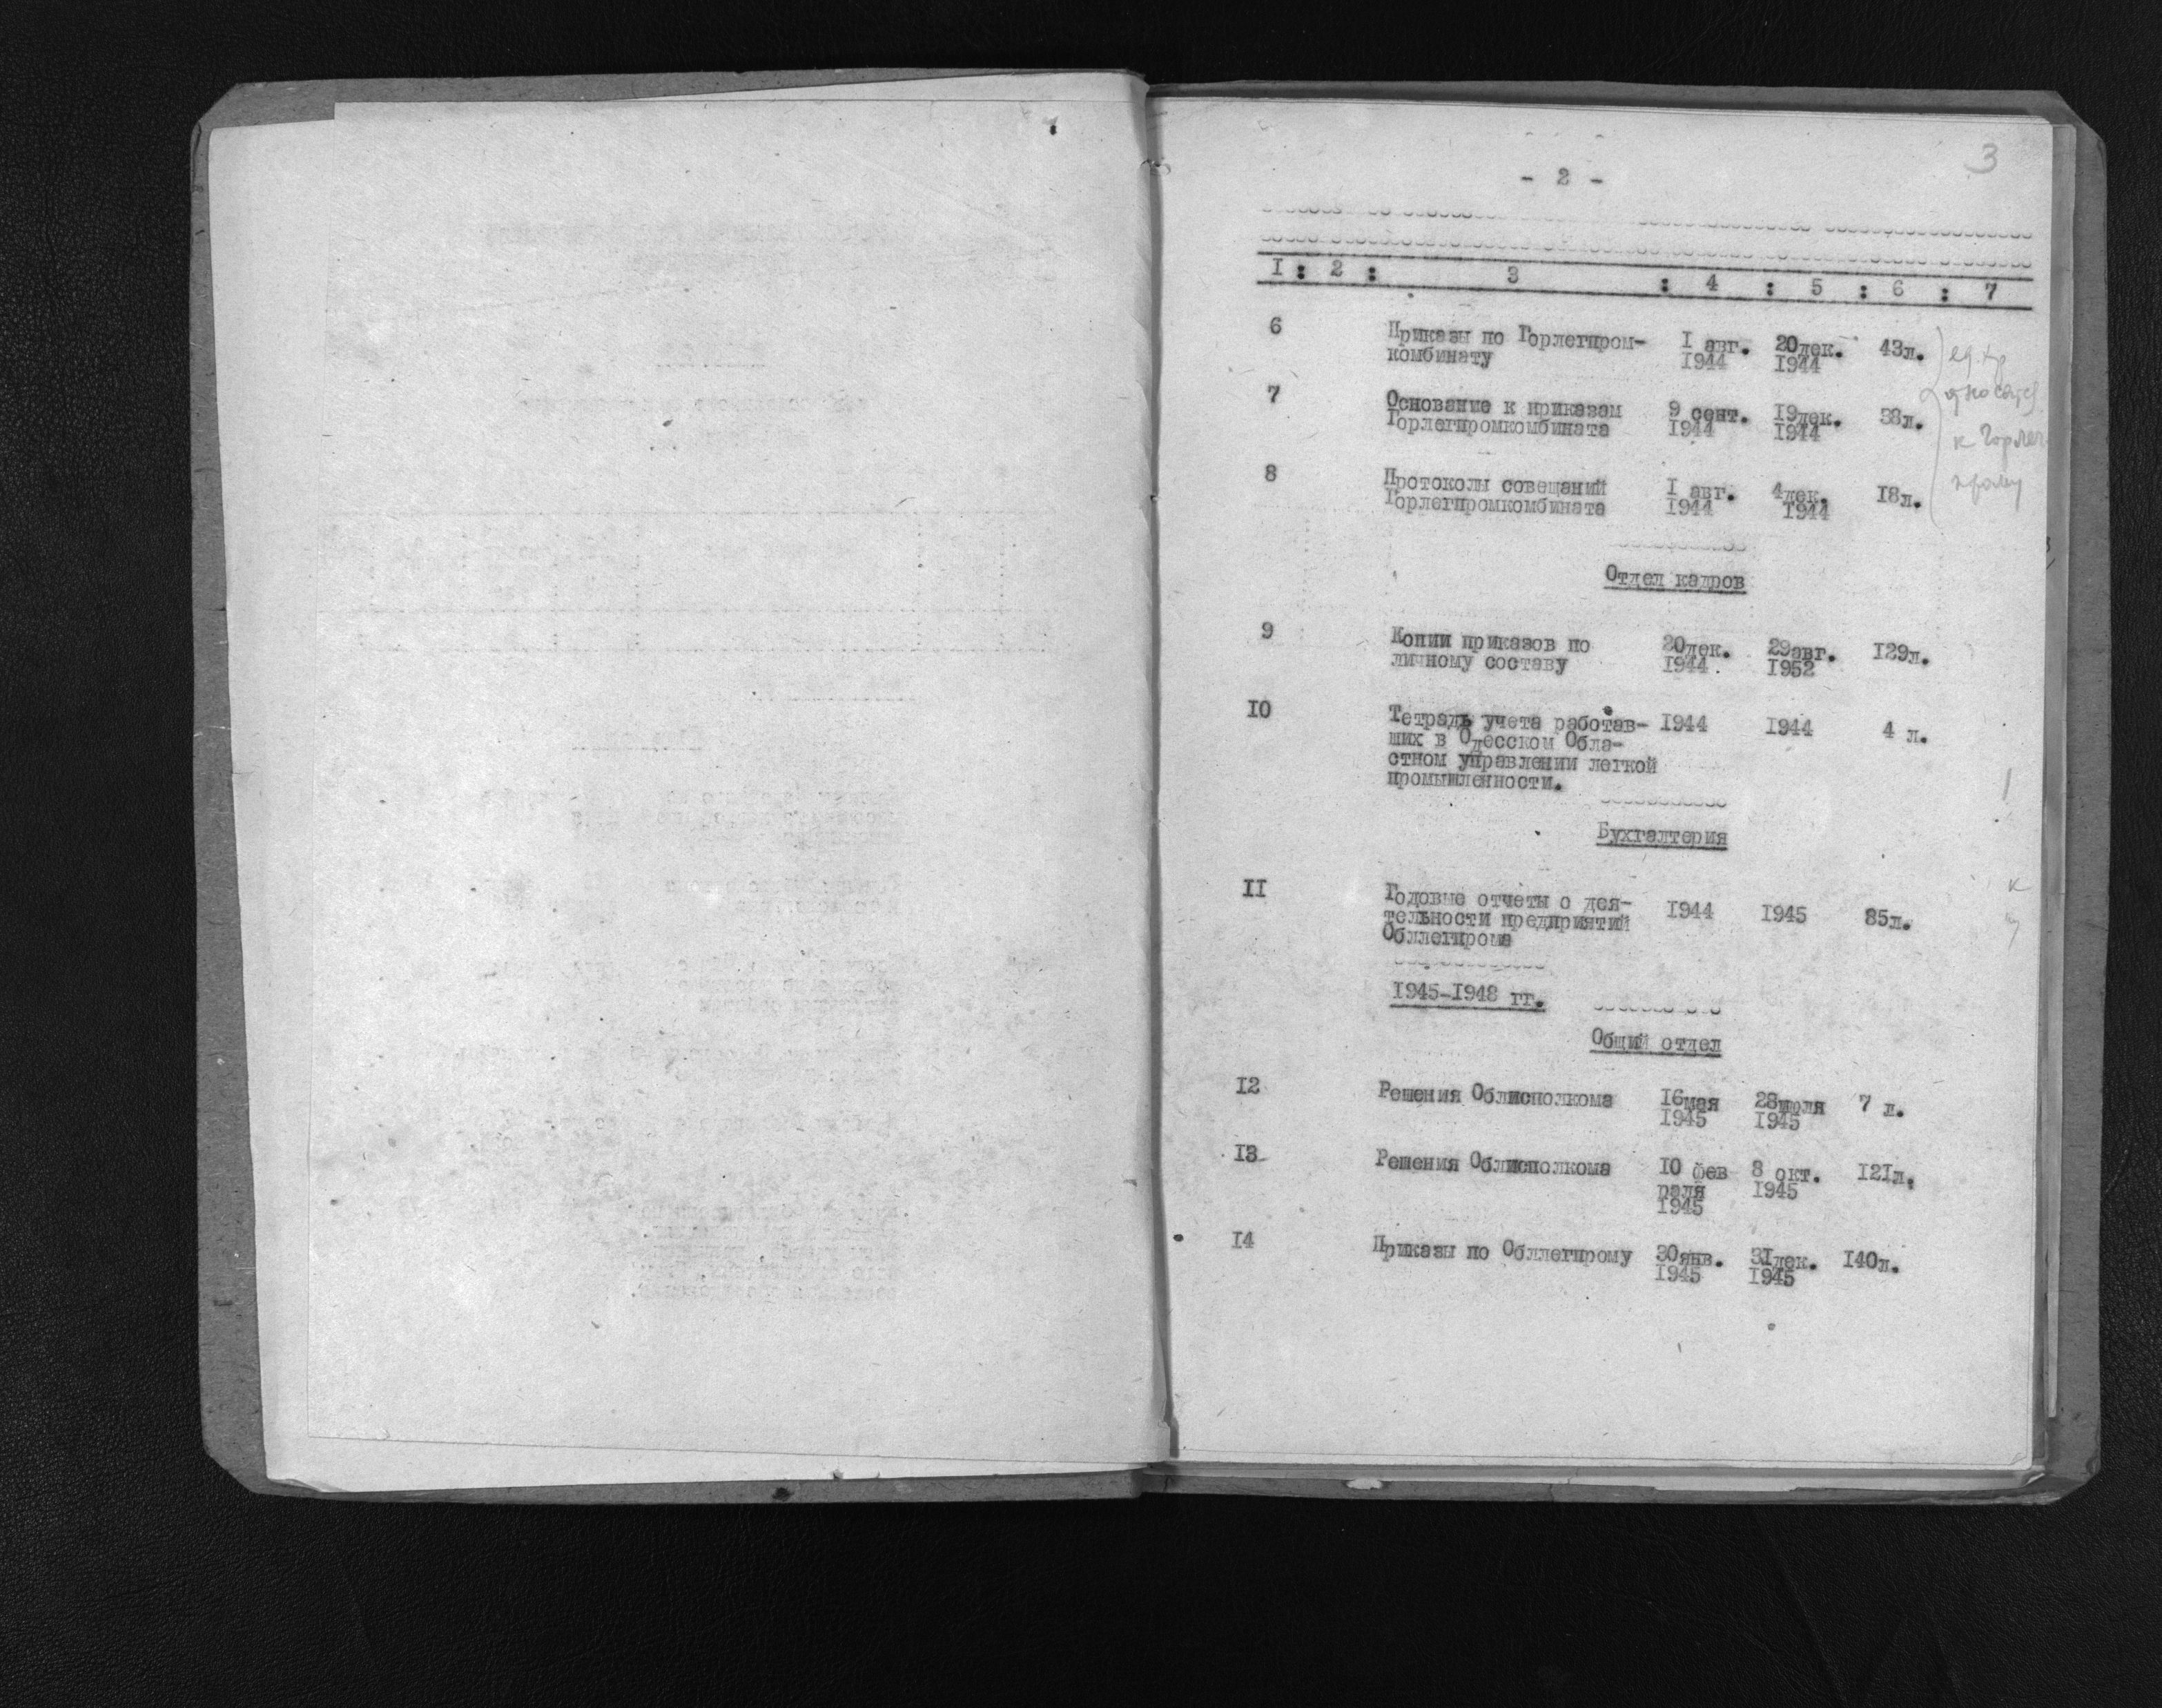 3
- 2 -
I : 2 : 3 : 4 : 5 : 6 : 7
6 Приказы по Горлегпром- I авг. 20дек. 43л.
комбинату 1944 1944
ед. хр
относятся
7 Основание к приказам 9 сент. 19дек. 38л.
Горлегпромкомбината 1944 1944
к Горлег-
прому
8 Протоколы совещаний I авг. 4дек. I8л.
Горлегпромкомбината 1944 1944
Отдел кадров
9 Копии приказов по 20дек. 29авг. I29л.
личному составу 1944 1952
IO Тетрадь учета работав- I944 I944 4 л.
ших в Одесском Обла-
стном управлении легкой
промышленности.
Бухгалтерия
II Годовые отчеты о дея- I944 I945 85л.
тельности предприятий
Обллегпрома
I945-I948 гг.
Общий отдел
I2 Решения Облисполкома I6мая 28июля 7 л.
I945 I945
I3 Решения Облисполкома IO фев 8 окт. I2Iл.
раля I945
I945
I4 Приказы по Обллегпрому 30янв. 3Iдек. I40л.
I945 I945